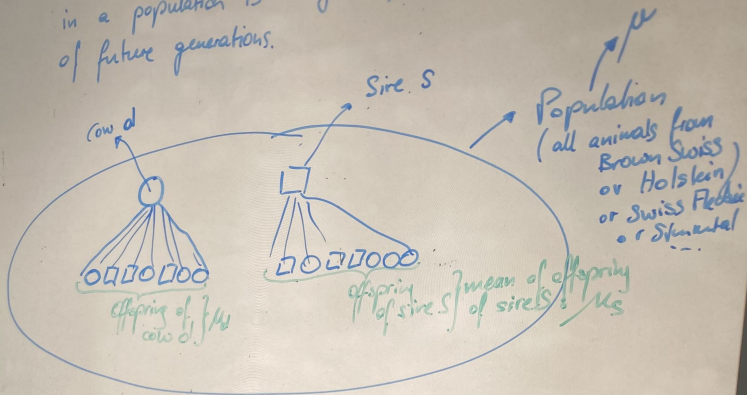 in a population is
of future generations.
Sire S
cow d
μ
Population
(all animals from
Brown Swiss
or Holstein)
or Swiss
or Simmental
...
offspring of
cow d } μd
offspring
of sire S } mean of offspring
of sire S : μs